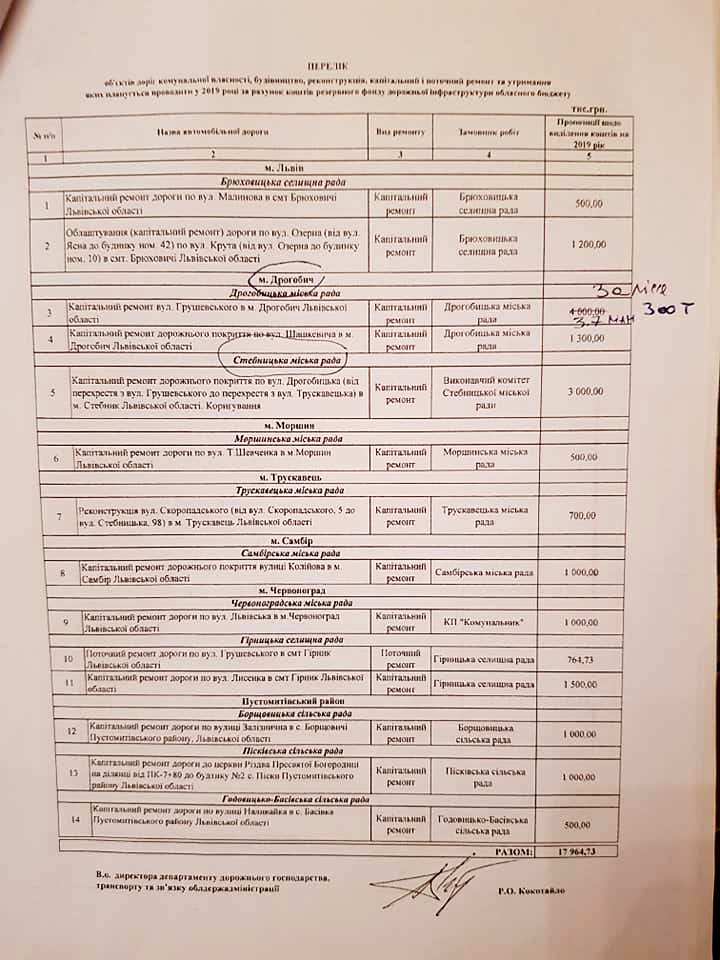 ПЕРЕЛІК
об'єктів доріг комунальної власності, будівництво, реконструкція, капітальний і поточний ремонт та утримання
яких планується проводити у 2019 році за рахунок коштів резервного фонду дорожньої інфраструктури обласного бюджету
тис.грн.
№ п/п Назва автомобільної дороги Вид ремонту Замовник робіт Пропозиції щодо виділення коштів на 2019 рік
1 2 3 4 5
м. Львів
Брюховицька селищна рада
1 Капітальний ремонт дороги по вул. Малинова в смт Брюховичі Львівської області Капітальний ремонт Брюховицька селищна рада 500,00
2 Облаштування (капітальний ремонт) дороги по вул. Озерна (від вул. Ясна до будинку ном. 42) по вул. Крута (від вул. Озерна до будинку ном. 10) в смт. Брюховичі Львівської області Капітальний ремонт Брюховицька селищна рада 1 200,00
м. Дрогобич
Дрогобицька міська рада
3 Капітальний ремонт вул. Грушевського в м. Дрогобич Львівської області Капітальний ремонт Дрогобицька міська рада 4 000,00
3.7 млн
300 т
4 Капітальний ремонт дорожнього покриття по вул. Шашкевича в м. Дрогобич Львівської області Капітальний ремонт Дрогобицька міська рада 1 300,00
Стебницька міська рада
5 Капітальний ремонт дорожнього покриття по вул. Дрогобицька (від перехрестя з вул. Грушевського до перехрестя з вул. Трускавецька) в м. Стебник Львівської області. Коригування Капітальний ремонт Виконавчий комітет Стебницької міської ради 3 000,00
м. Моршин
Моршинська міська рада
6 Капітальний ремонт дороги по вул. Т.Шевченка в м.Моршин Львівської області Капітальний ремонт Моршинська міська рада 500,00
м. Трускавець
Трускавецька міська рада
7 Реконструкція вул. Скоропадського (від вул. Скоропадського, 5 до вул. Стебницька, 98) в м. Трускавець Львівської області Капітальний ремонт Трускавецька міська рада 700,00
м. Самбір
Самбірська міська рада
8 Капітальний ремонт дорожнього покриття вулиці Колійова в м. Самбір Львівської області Капітальний ремонт Самбірська міська рада 1 000,00
м. Червоноград
Червоноградська міська рада
9 Капітальний ремонт дороги по вул. Львівська в м.Червоноград Львівської області Капітальний ремонт КП "Комунальник" 1 000,00
Гірницька селищна рада
10 Поточний ремонт дороги по вул. Грушевського в смт Гірник Львівської області Поточний ремонт Гірницька селищна рада 764,73
11 Капітальний ремонт дороги по вул. Лисенка в смт Гірник Львівської області Капітальний ремонт Гірницька селищна рада 1 500,00
Пустомитівський район
Борщовицька сільська рада
12 Капітальний ремонт дороги по вулиці Залізнична в с. Борщовичі Пустомитівського району, Львівської області Капітальний ремонт Борщовицька сільська рада 1 000,00
Пісківська сільська рада
13 Капітальний ремонт дороги до церкви Різдва Пресвятої Богородиці на ділянці від ПК-7+80 до будинку №2 с. Піски Пустомитівського району Львівської області Капітальний ремонт Пісківська сільська рада 1 000,00
Годовицько-Басівська сільська рада
14 Капітальний ремонт дороги по вулиці Наливайка в с. Басівка Пустомитівського району Львівської області Капітальний ремонт Годовицько-Басівська сільська рада 500,00
РАЗОМ: 17 964,73
В.о. директора департаменту дорожнього господарства,
транспорту та зв'язку облдержадміністрації Р.О. Кокотайло